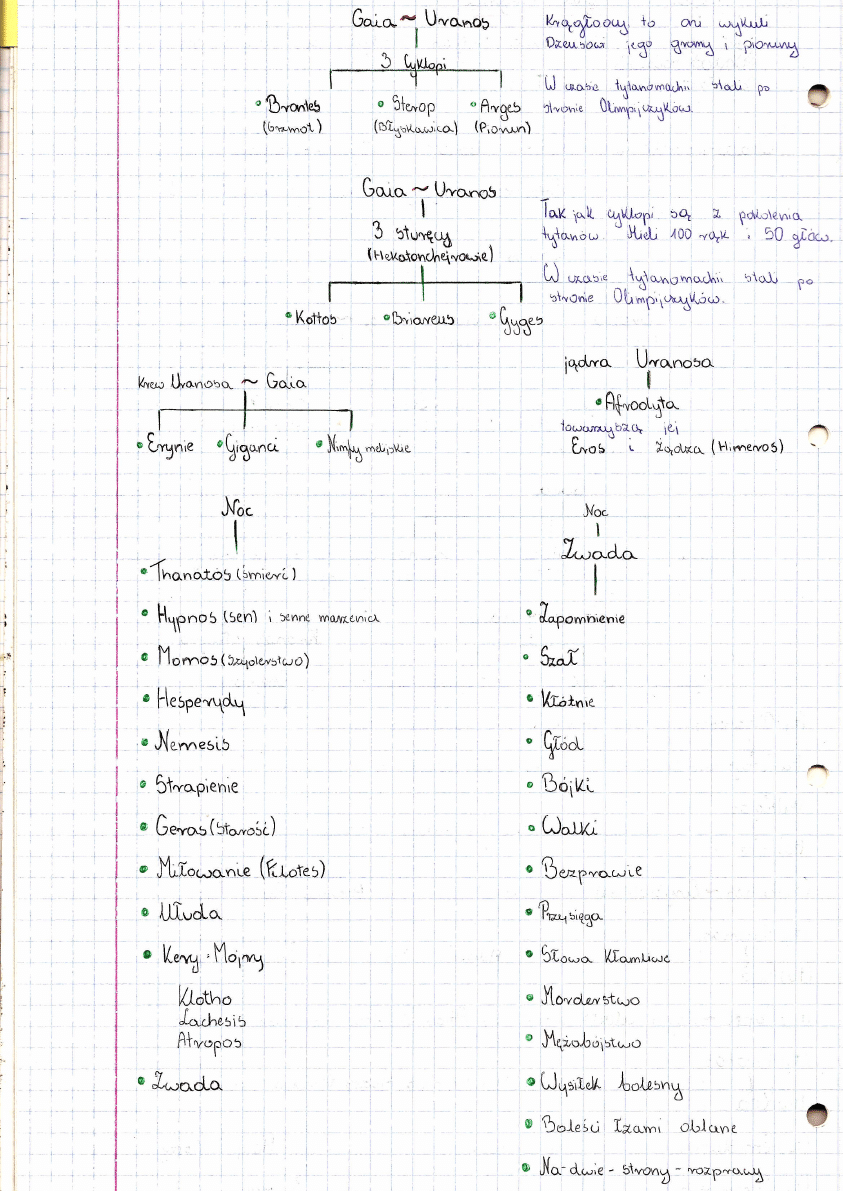 Gaia ~ Uranos
3 Cyklopi
Brontes
(Grzmot)
Sterop
(Błyskawica)
Arges
(Piorun)
Krągłoocy to oni wykuli
Dzeusowi jego gromy i pioruny
W czasie tytanomachii stali po
stronie Olimpijczyków.
Gaia ~ Uranos
3 sturęcy
(Hekatonchejrowie)
Kottos
Briareus
Gyges
Tak jak cyklopi są z pokolenia
tytanów. Mieli 100 rąk i 50 głów.
W czasie tytanomachii stali po
stronie Olimpijczyków.
Krew Uranosa ~ Gaia
Erynie
Giganci
Nimfy melijskie
jądra Uranosa
Afrodyta
towarzyszą jej
Eros i Żądza (Himeros)
Noc
Thanatos (śmierć)
Hypnos (sen) i senne marzenia
Momos (Szyderstwo)
Hesperydy
Nemesis
Strapienie
Geras (Starość)
Miłowanie (Filotes)
Ułuda
Kery i Mojry
Klotho
Lachesis
Atropos
Zwada
Noc
Zwada
Zapomnienie
Szał
Kłótnie
Głód
Bójki
Walki
Bezprawie
Przysięga
Słowa Kłamliwe
Morderstwo
Mężobójstwo
Wysiłek bolesny
Boleści łzami oblane
Na-dwie-strony-rozprawy